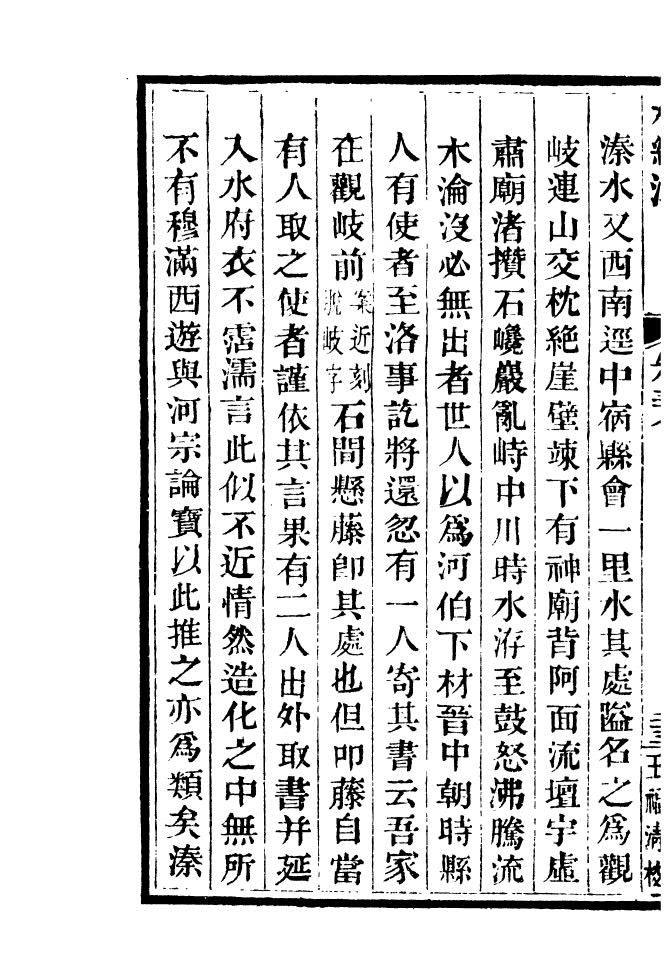 溱水又西南逕中宿縣會一里水其處隘名之爲觀
岐連山交枕絶崖壁竦下有神廟背阿面流壇宇虛
肅廟渚攢石巉巖亂峙中川時水洊至鼓怒沸騰流
木淪沒必無出者世人以爲河伯下材晉中朝時縣
人有使者至洛事訖將還忽有一人寄其書云吾家
在觀岐前案近刻脫岐字石間懸藤卽其處也但叩藤自當
有人取之使者謹依其言果有二人出外取書并延
入水府衣不霑濡言此似不近情然造化之中無所
不有穆滿西遊與河宗論寶以此推之亦爲類矣溱